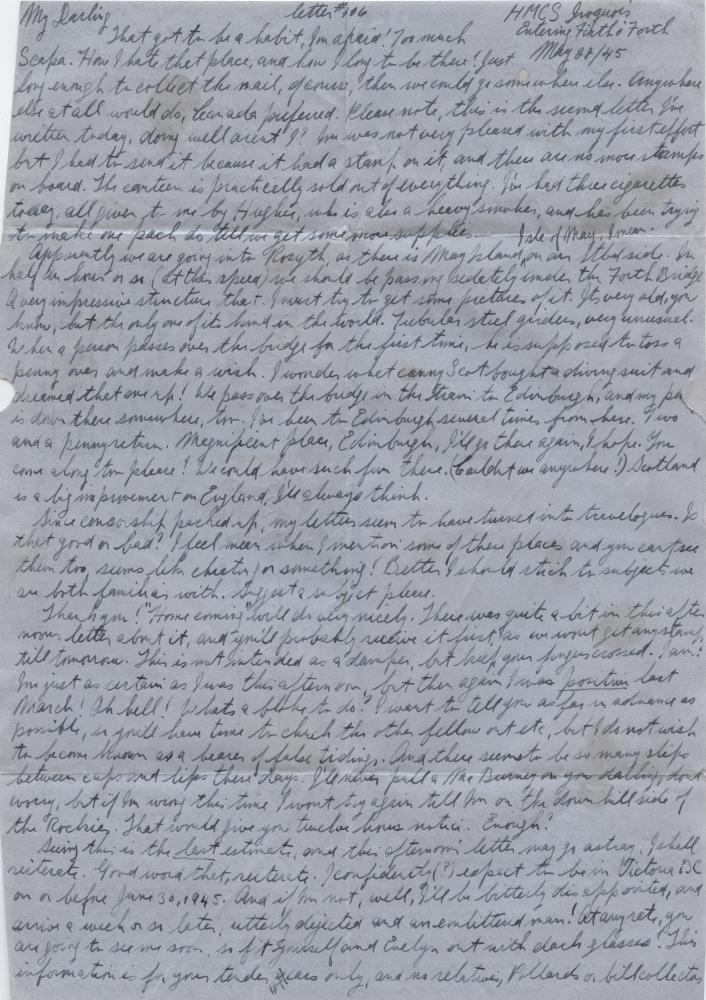 My Darling letter #106 HMCS Iroquois
Entering Firth o' Forth
May 28/45
That got to be a habit, I'm afraid! Too much
Scapa. How I hate that place, and how I long to be there! Just
long enough to collect the mail, of course, then we could go somewhere else. Anywhere
else at all would do, Canada preferred. Please note, this is the second letter I've
written today, doing well aren't I? I was not very pleased with my first effort
but I had to send it because it had a stamp on it, and there are no more stamps
on board. The canteen is practically sold out of everything. I've had three cigarettes
today, all given to me by Hughie, who is also a heavy smoker, and has been trying
to make one pack do, till we get some more supplies. Isle of May, I mean.
Apparently we are going into Rosyth, as there is May Island, on our Stbd side. In
half an hour or so (at this speed) we should be passing sedately under the Forth Bridge
A very impressive structure that. I must try to get some pictures of it. It's very old, you
know, but the only one of its kind in the world. Tubular steel girders, very unusual.
When a person passes over the bridge for the first time, he is supposed to toss a
penny over and make a wish. I wonder what canny Scot bought a diving suit and
dreamed that one up! We pass over the bridge in the train to Edinburgh, and my
is down there somewhere, too, I've been to Edinburgh several times from here. Two
and a penny return. Magnificent place, Edinburgh, I'll go there again, I hope. You
come along too please! We could have such fun there. (Couldn't we anywhere?) Scotland
is a big improvement on England, I'll always think.
Since censorship packed up, my letters seem to have turned into travelogues. Is
that good or bad? I feel mean when I mention some of these places and you can't see
them too, seems like cheating or something! Better I should stick to subjects we
are both familiar with. Suggest a subject please.
Thank you! "Home coming" will do very nicely. There was quite a bit in this after
noons letter about it, and you'll probably receive it first as we won't get any stamps
till tomorrow. This is not intended as a damper, but keep your fingers crossed. I am!
I'm just as certain as I was this afternoon, but then again I was positive last
March! Oh hell! Whats a bloke to do? I want to tell you as far in advance as
possible, so you'll have time to chuck the other fellow out etc, but I do not wish
to become known as a bearer of false tidings. And there seems to be so many slips
between cups and lips these days. I'll never pull a Mac Burney on you darling, don't
worry, but if I'm wrong this time I won't try again till I'm on the down hill side of
the Rockies. That would give you twelve hours notice. Enough?
Seeing this is the last estimate, and this afternoon's letter may go astray, I shall
reiterate. Good word that, reiterate. I confidently (?) expect to be in Victoria BC
on or before June 30, 1945. And if I'm not, well, I'll be bitterly disappointed, and
arrive a week or so later, utterly dejected and an embittered man! At any rate, you
are going to see me soon, so fit yourself and Evelyn out with dark glasses. This
information is for your tender ears only, and no relatives, Pollards or bill collectors